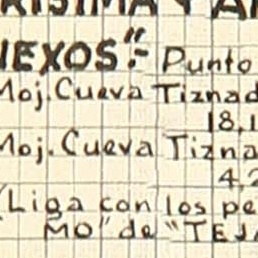 NEXOS".- Punto
Moj. Cueva Tiznad
18,1
Moj. Cueva Tizna
4,2
(Liga con los pe
MO" de "TEJA